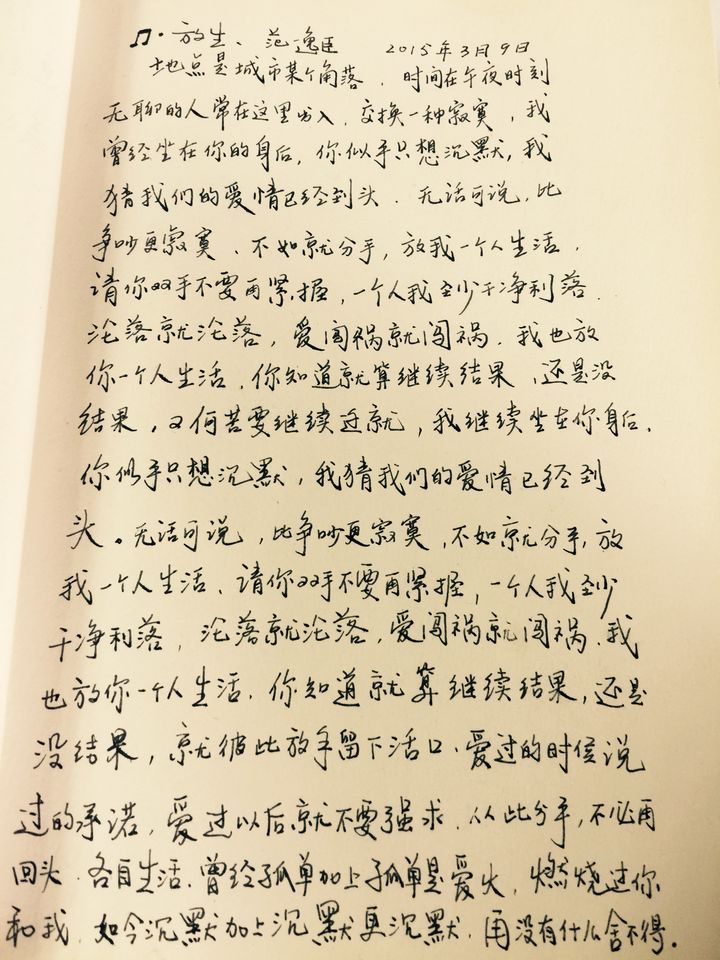 ♫·放生、范逸臣 2015年3月9日
地点是城市某个角落．时间在午夜时刻
无聊的人常在这里出入．交换一种寂寞，我
曾经坐在你的身后，你似乎只想沉默，我
猜我们的爱情已经到头．无话可说，比
争吵更寂寞、不如就分手，放我一个人生活．
请你双手不要再紧握，一个人我至少干净利落．
沦落就沦落，爱闯祸就闯祸．我也放
你一个人生活．你知道就算继续结果，还是没
结果，又何苦要继续迁就，我继续坐在你身后．
你似乎只想沉默，我猜我们的爱情已经到
头。无话可说，比争吵更寂寞，不如就分手，放
我一个人生活、请你双手不要再紧握，一个人我至少
干净利落，沦落就沦落，爱闯祸就闯祸．我
也放你一个人生活．你知道就算继续结果，还是
没结果，就彼此放手留下活口．爱过的时候说
过的承诺，爱过以后就不要强求．从此分手，不必再
回头．各自生活．曾经孤单加上孤单是爱火，燃烧过你
和我．如今沉默加上沉默更沉默．再没有什么舍不得．